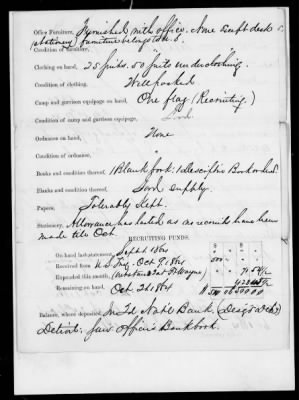 Office Furniture, Furnished with office. None Except desk &
(Stationery) furniture belong to U.S.
Condition of furniture,
Clothing on hand, 25 suits. 50 suits underclothing.
Condition of clothing, Well packed
Camp and garrison equipage on hand, One flag (Recruiting.)
Condition of camp and garrison equipage, Good
Ordnance on hand, None
Condition of ordnance, "
Books and condition thereof, 1 Blank book: 1 Descriptive Book ordered.
Blanks and condition thereof, Good supply.
Papers, Tolerably kept.
Stationery, Allowance has lasted, as no recruits have been
made till Oct.
RECRUITING FUNDS.
On hand last statement, Sept 1 1864
Received from U.S. Trs. Oct 9. 1864 500
Expended this month, 71.54
Remaining on hand, Oct. 31 1864
Balance, where deposited, In 1st Nat'l Bank (Desig'd Dep'y)
Detroit. Saw Officer's Bankbook.